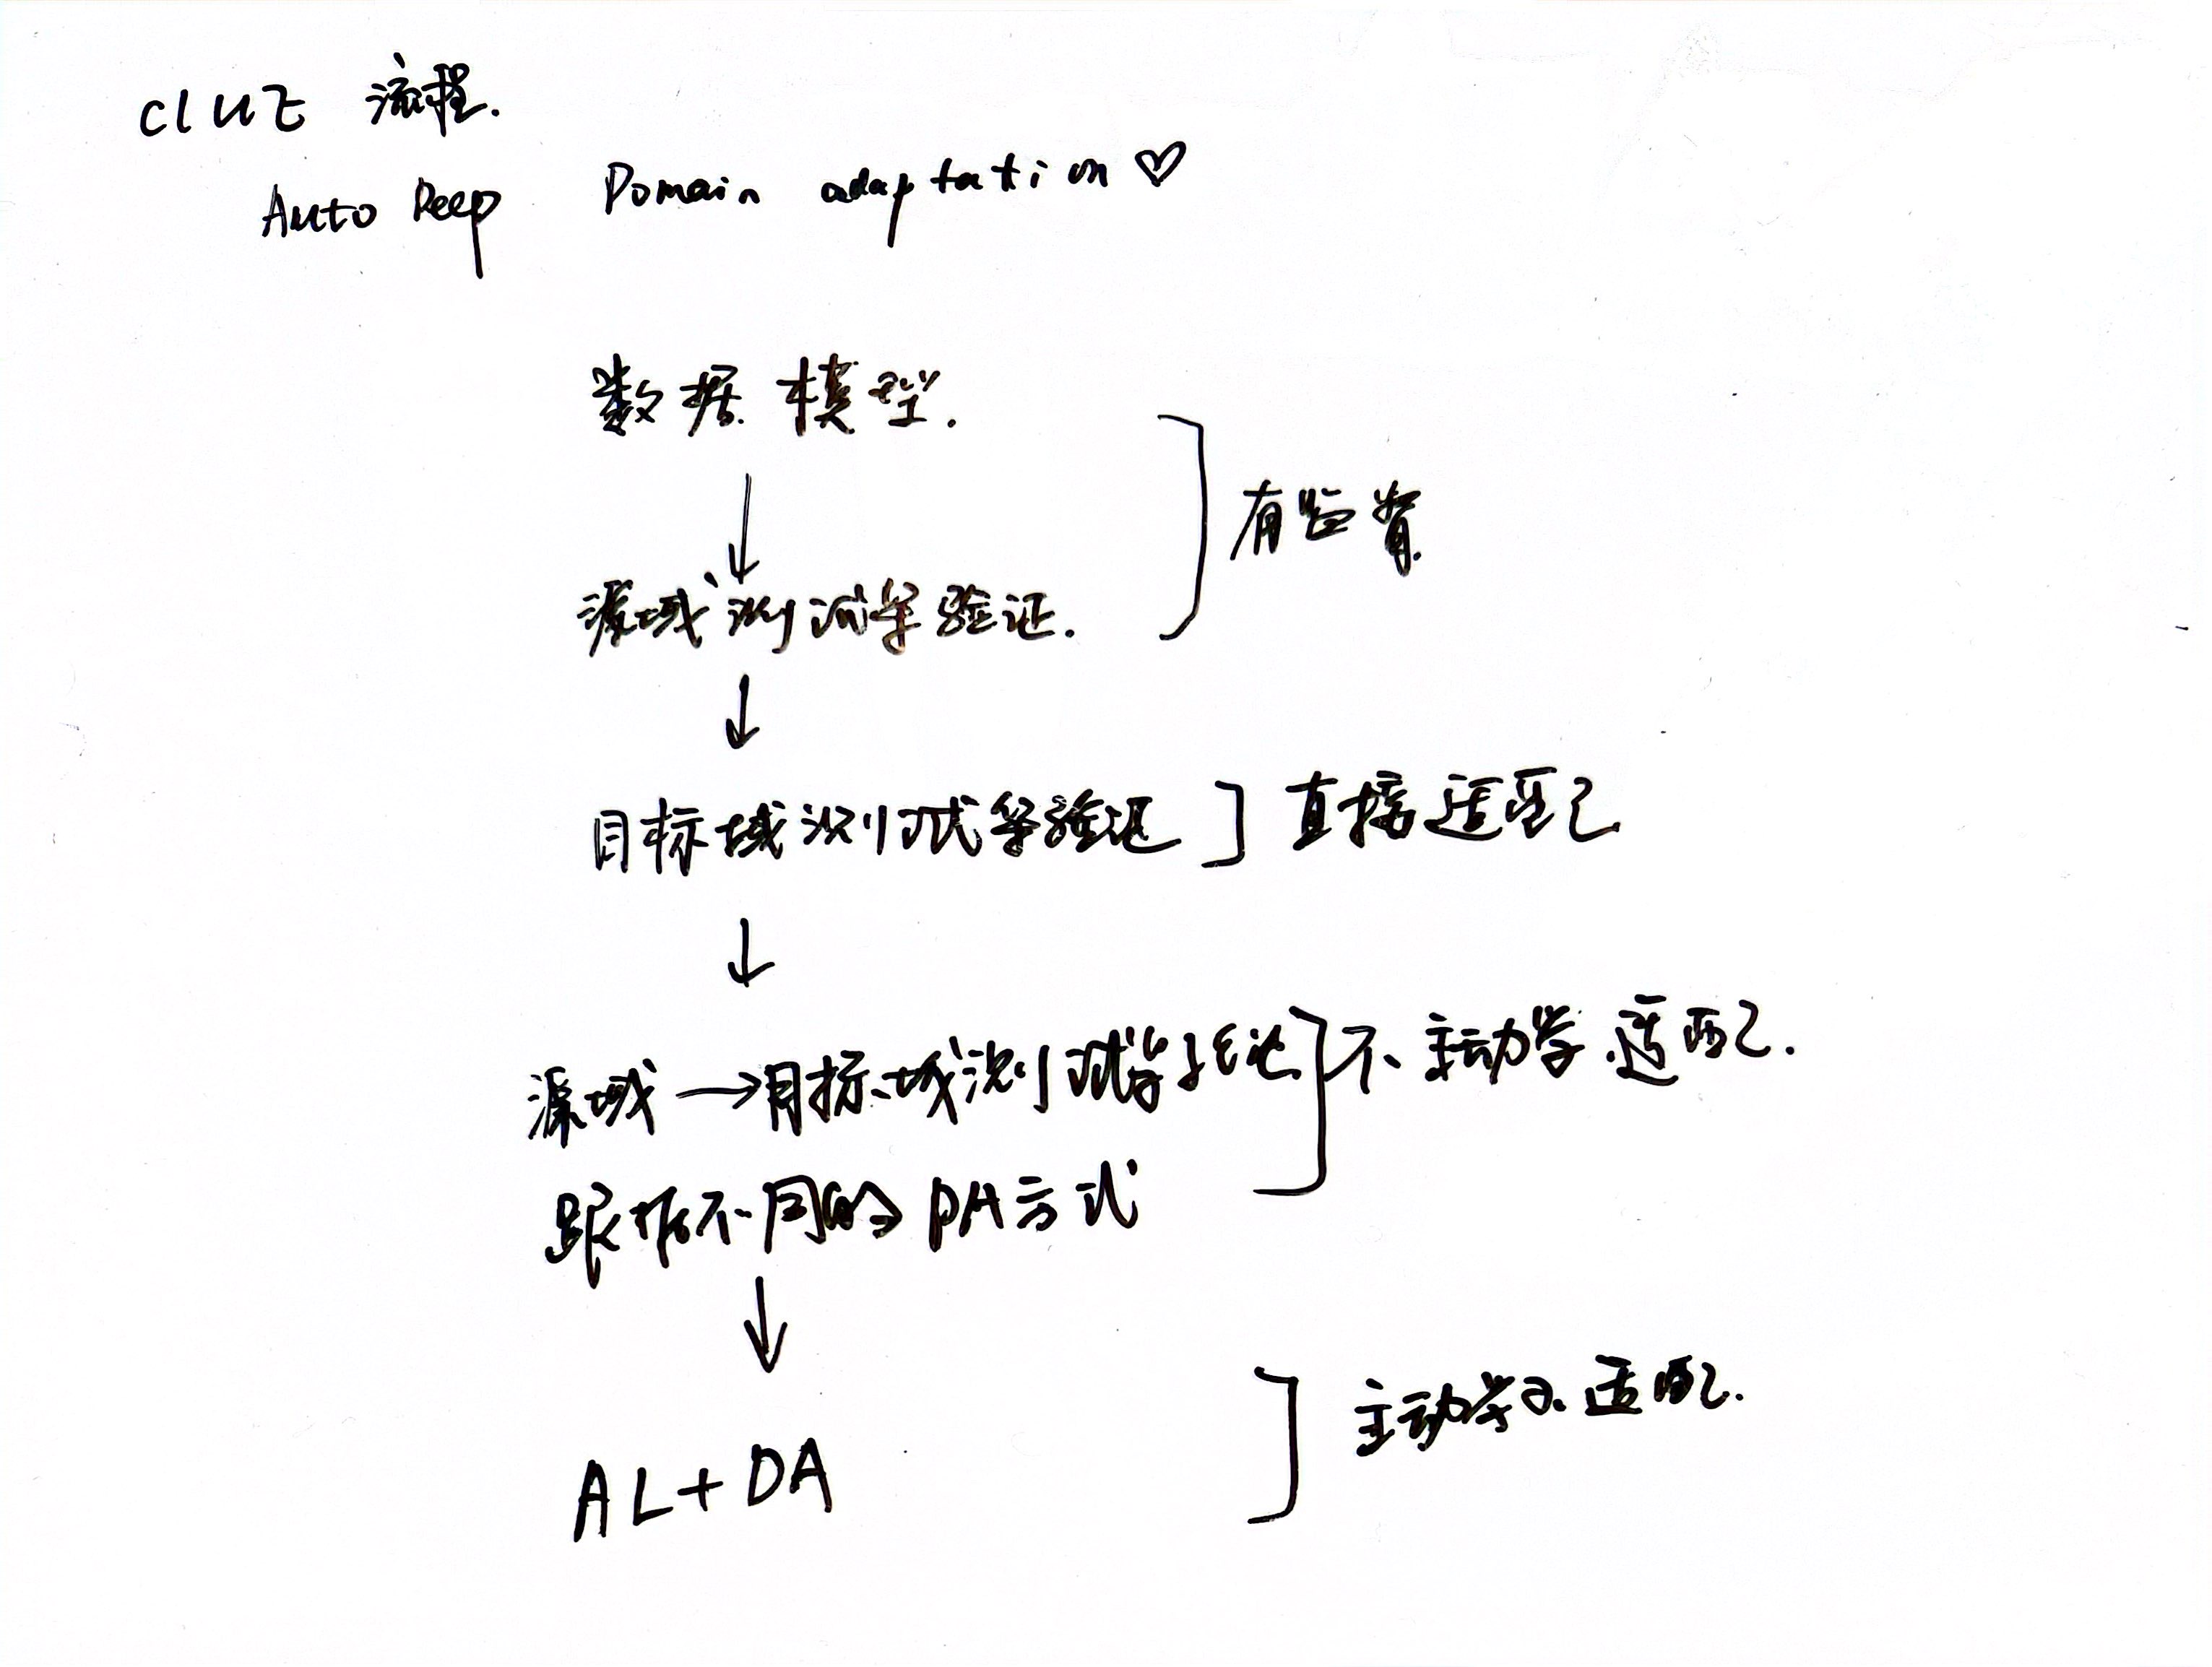 CLUE 流程.
Auto Deep Domain adaptation ♡
数据 模型.
↓
源域测试集验证.
] 有监督.
↓
目标域测试集验证 ] 直接适配
↓
源域 → 目标域测试集验证 ] 不主动学 适配.
跟据不同的 DA 方式
↓
AL+DA ] 主动学习 适配.